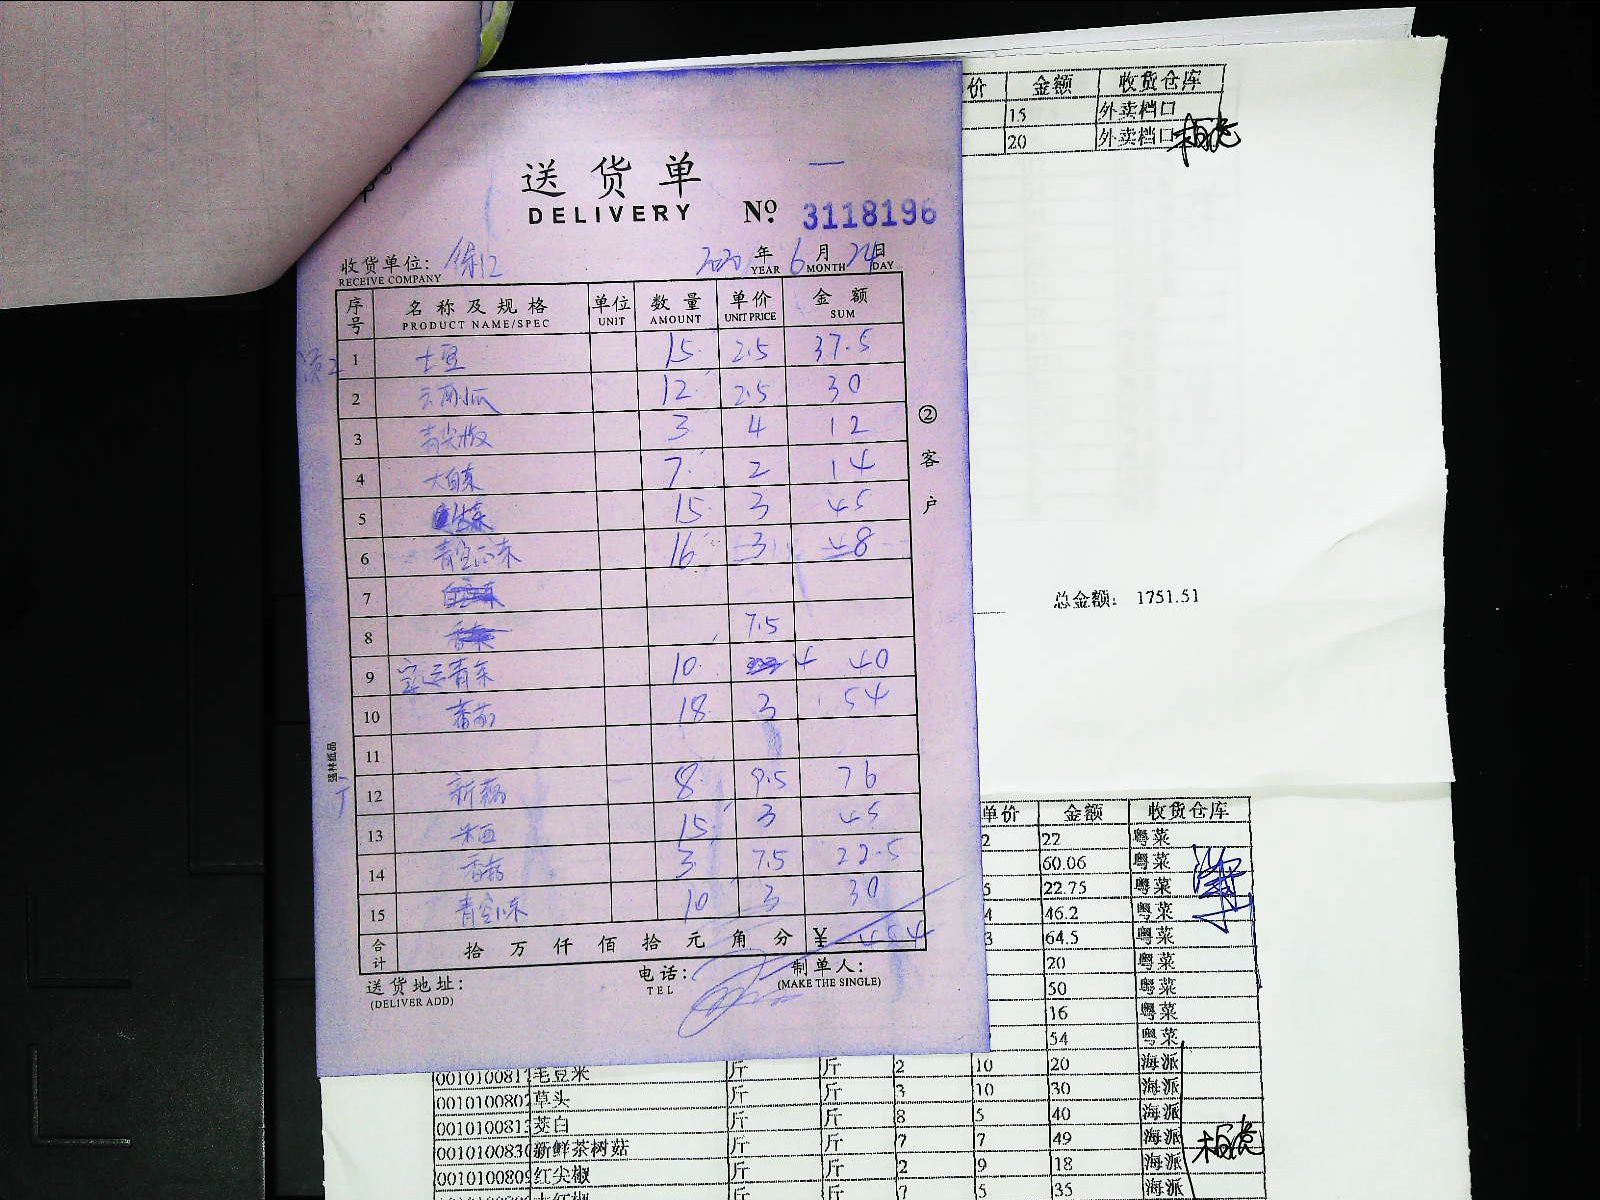 价 金额 收货仓库
15 外卖档口
20 外卖档口
送货单
DELIVERY
№ 3118196
收货单位:
RECEIVE COMPANY
2020 年 6 月 24 日
YEAR MONTH DAY
序号 名称及规格 单位 数量 单价 金额
PRODUCT NAME/SPEC UNIT AMOUNT UNIT PRICE SUM
1 土豆 15 2.5 37.5
2 12 2.5 30
3 青尖椒 3 4 12
4 大白菜 7 2 14
5 生菜 15 3 45
6 16 3 48
7
8 7.5
9 10 4 40
10 番茄 18 3 54
11
12 8 9.5 76
13 15 3 45
14 香菇 3 7.5 22.5
15 10 3 30
合计 拾 万 仟 佰 拾 元 角 分 ¥ 454
送货地址:
(DELIVER ADD)
电话:
TEL
制单人:
(MAKE THE SINGLE)
②客户
强林纸品
总金额: 1751.51
单价 金额 收货仓库
2 22 粤菜
60.06 粤菜
5 22.75 粤菜
4 46.2 粤菜
3 64.5 粤菜
20 粤菜
50 粤菜
16 粤菜
54 粤菜
001010081 毛豆米 斤 斤 2 10 20 海派
001010080 草头 斤 斤 3 10 30 海派
001010081 茭白 斤 斤 8 5 40 海派
001010083 新鲜茶树菇 斤 斤 7 7 49 海派
001010080 红尖椒 斤 斤 2 9 18 海派
斤 斤 7 5 35 海派